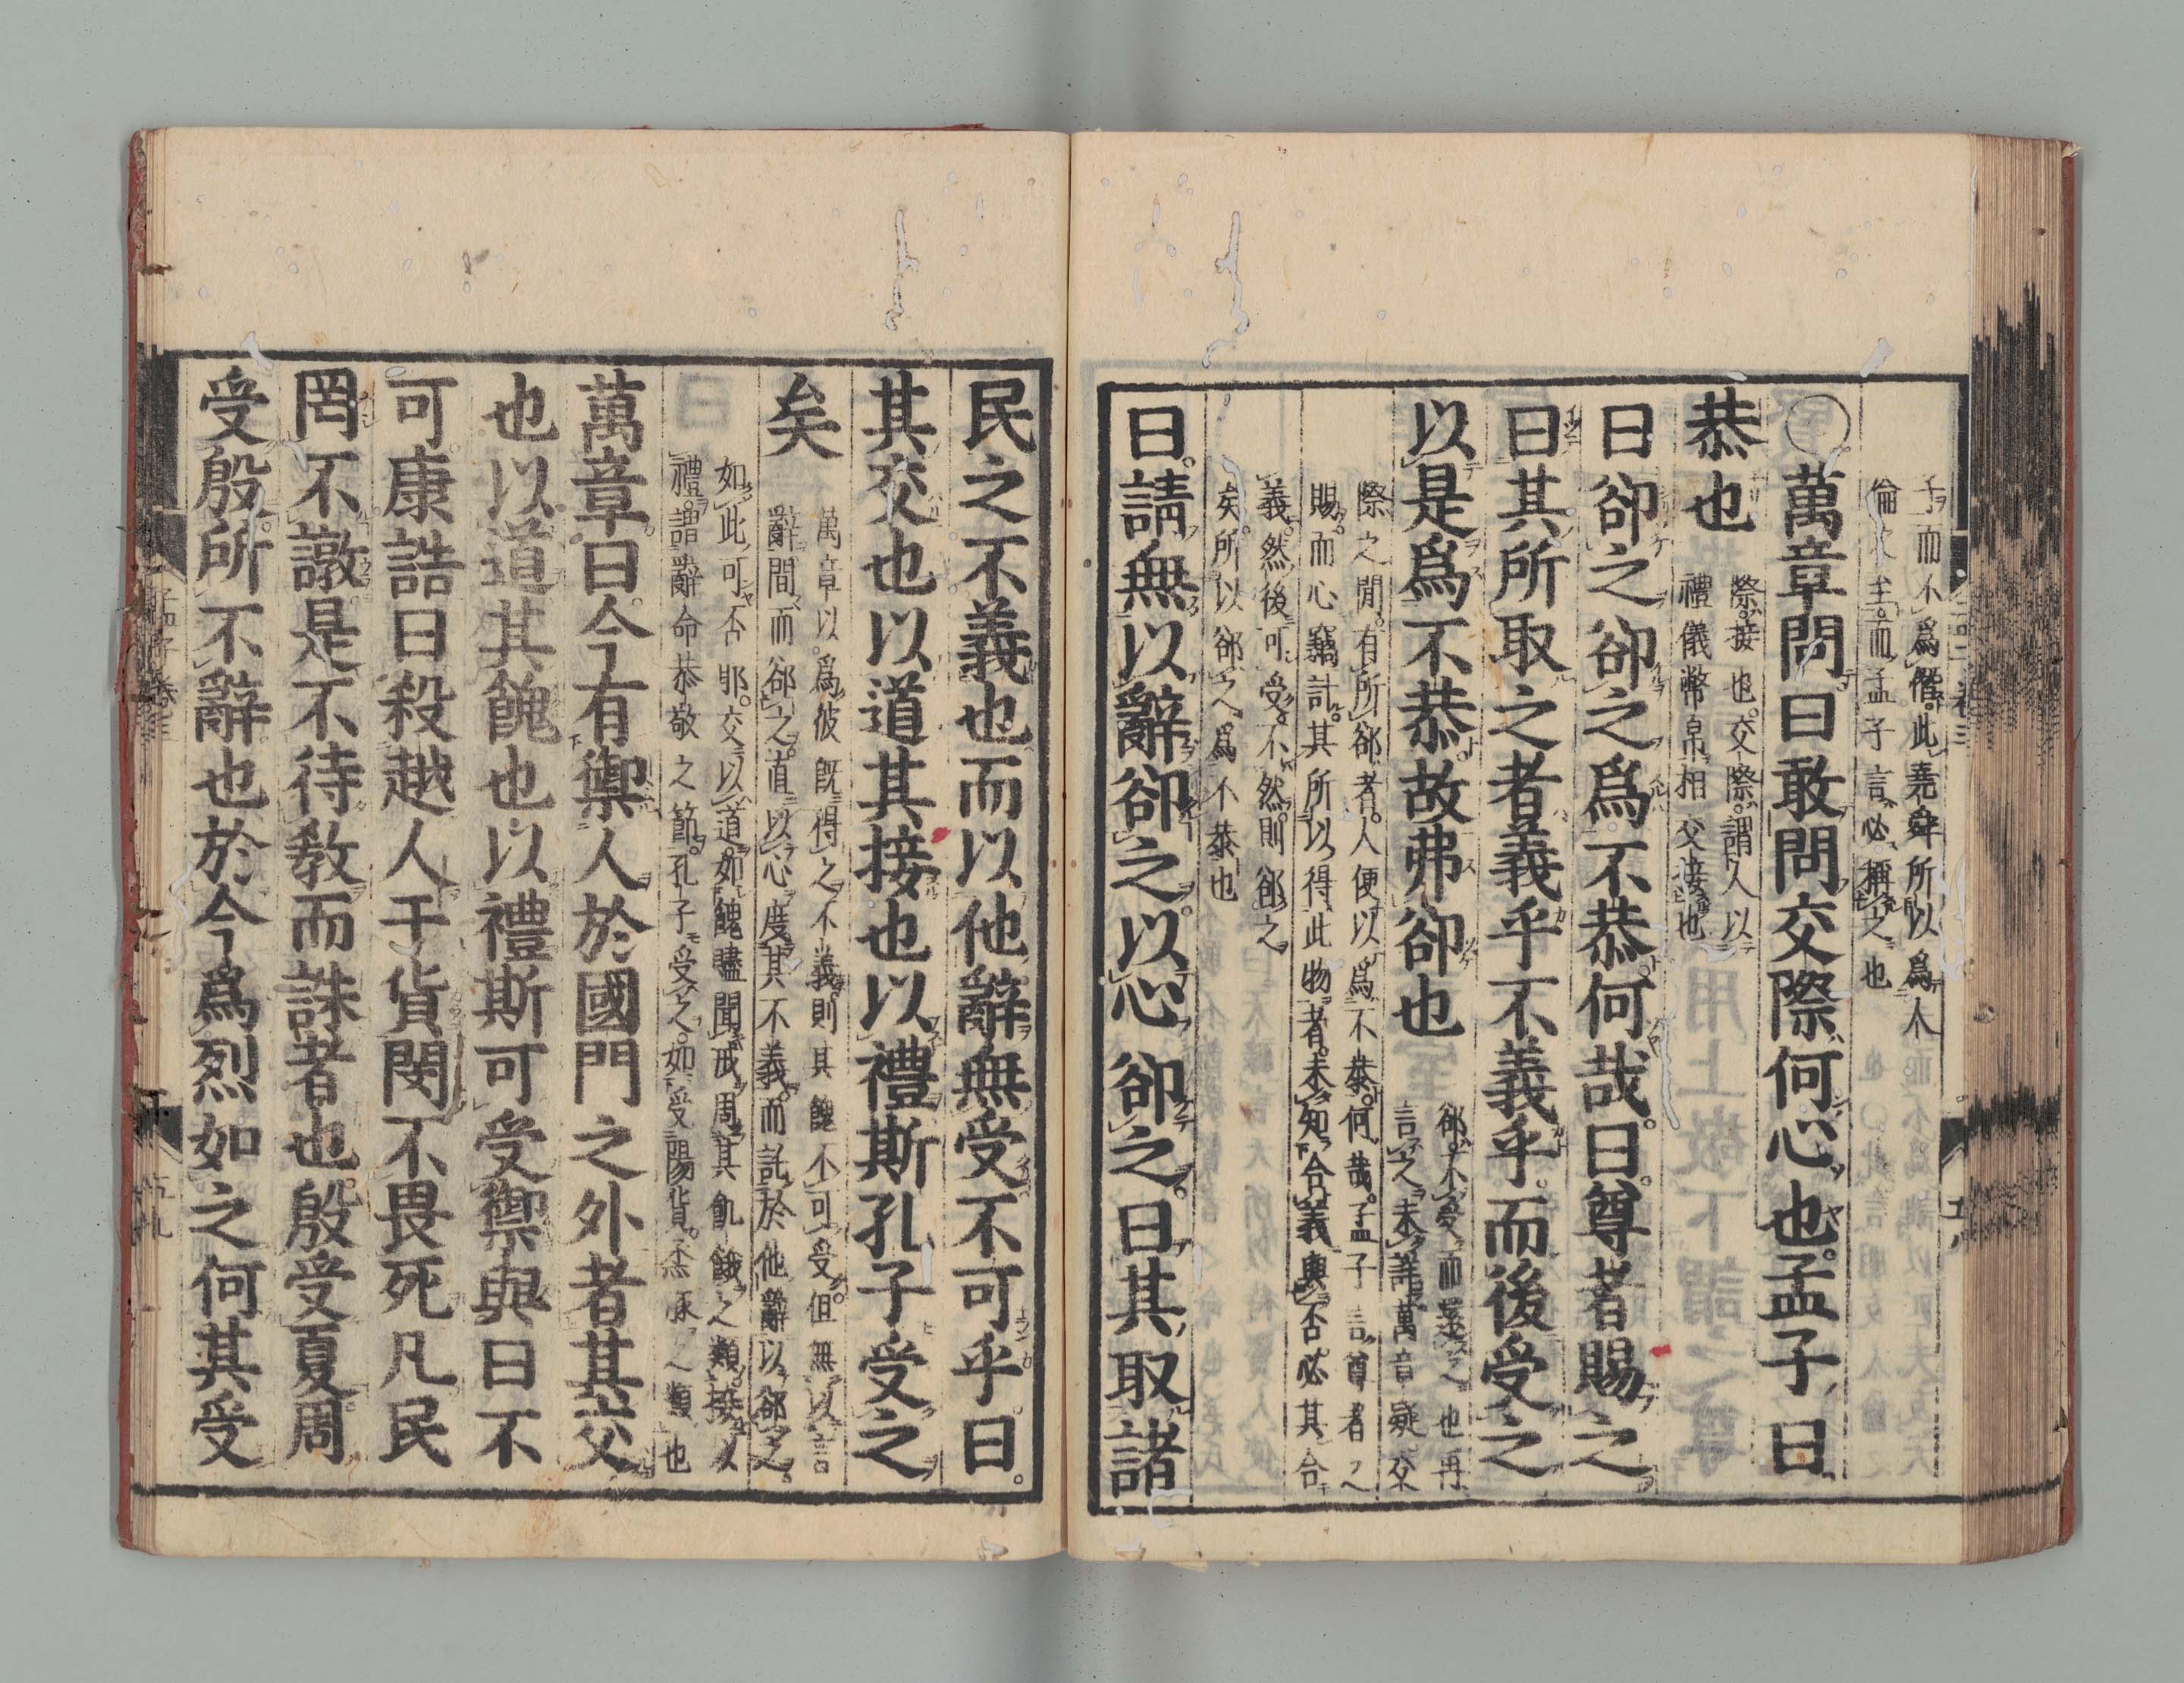 子而不爲僭此堯舜所以爲人
倫之至而孟子言必稱之也
○萬章問曰敢問交際何心也孟子曰
恭也
際接也交際謂人以
禮儀幣帛相交接也
曰卻之卻之爲不恭何哉曰尊者賜之
曰其所取之者義乎不義乎而後受之
以是爲不恭故弗卻也
卻不受而還之也再
言之未詳萬章疑交
際之閒有所卻者人便以爲不恭何哉孟子言尊者之
賜而心竊計其所以得此物者未知合義與否必其合
義然後可受不然則卻之
矣所以卻之爲不恭也
曰請無以辭卻之以心卻之曰其取諸
民之不義也而以他辭無受不可乎曰
其交也以道其接也以禮斯孔子受之
矣
萬章以爲彼旣得之不義則其餽不可受但無以言
辭間而卻之直以心度其不義而託於他辭以卻之
如此可否耶交以道如餽贐聞戒周其飢餓之類接以
禮謂辭命恭敬之節孔子受之如受陽貨烝豚之類也
萬章曰今有禦人於國門之外者其交
也以道其餽也以禮斯可受禦與曰不
可康誥曰殺越人于貨閔不畏死凡民
罔不譈是不待敎而誅者也殷受夏周
受殷所不辭也於今爲烈如之何其受
孟子 卷三
五九